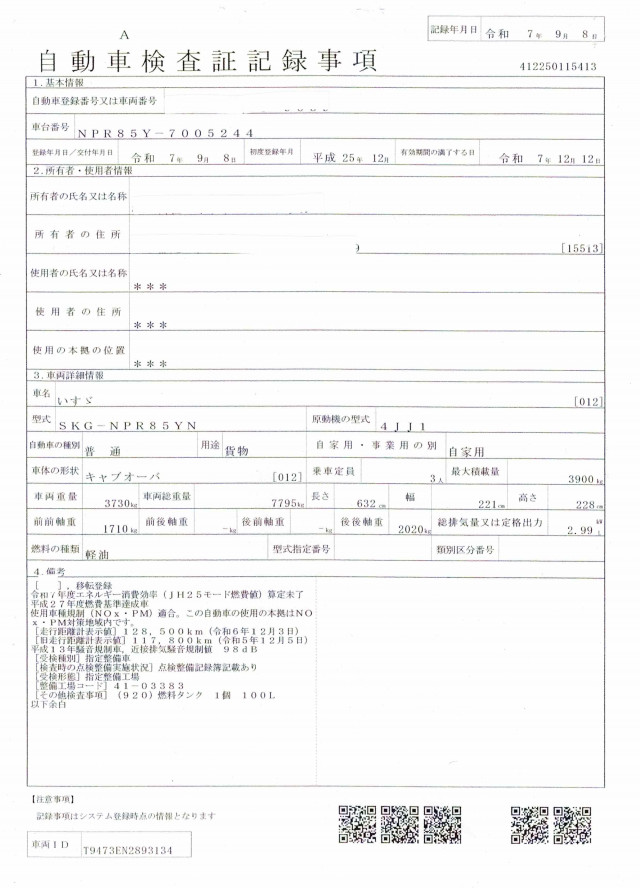 A
記録年月日 令和 7年 9月 8日
自動車検査証記録事項
412250115413
1. 基本情報
自動車登録番号又は車両番号
車台番号 NPR85Y-7005244
登録年月日/交付年月日 令和 7年 9月 8日 初度登録年月 平成 25年 12月 有効期間の満了する日 令和 7年 12月 12日
2. 所有者・使用者情報
所有者の氏名又は名称
所有者の住所 [15513]
使用者の氏名又は名称 ***
使用者の住所 ***
使用の本拠の位置 ***
3. 車両詳細情報
車名 いすゞ [012]
型式 SKG-NPR85YN 原動機の型式 4JJ1
自動車の種別 普通 用途 貨物 自家用・事業用の別 自家用
車体の形状 キャブオーバ [012] 乗車定員 3人 最大積載量 3900kg
車両重量 3730kg 車両総重量 7795kg 長さ 632cm 幅 221cm 高さ 228cm
前前軸重 1710kg 前後軸重 -kg 後前軸重 -kg 後後軸重 2020kg 総排気量又は定格出力 2.99 kW L
燃料の種類 軽油 型式指定番号 類別区分番号
4. 備考
[ ], 移転登録
令和7年度エネルギー消費効率(JH25モード燃費値)算定未了
平成27年度燃費基準達成車
使用車種規制(NOx・PM)適合。この自動車の使用の本拠はNO
x・PM対策地域内です。
[走行距離計表示値] 128,500km(令和6年12月3日)
[旧走行距離計表示値] 117,800km(令和5年12月5日)
平成13年騒音規制車、近接排気騒音規制値 98dB
[受検種別] 指定整備車
[検査時の点検整備実施状況] 点検整備記録簿記載あり
[受検形態] 指定整備工場
[整備工場コード] 41-03383
[その他検査事項] (920)燃料タンク 1個 100L
以下余白
【注意事項】
記録事項はシステム登録時点の情報となります
車両ID T9473EN2893134